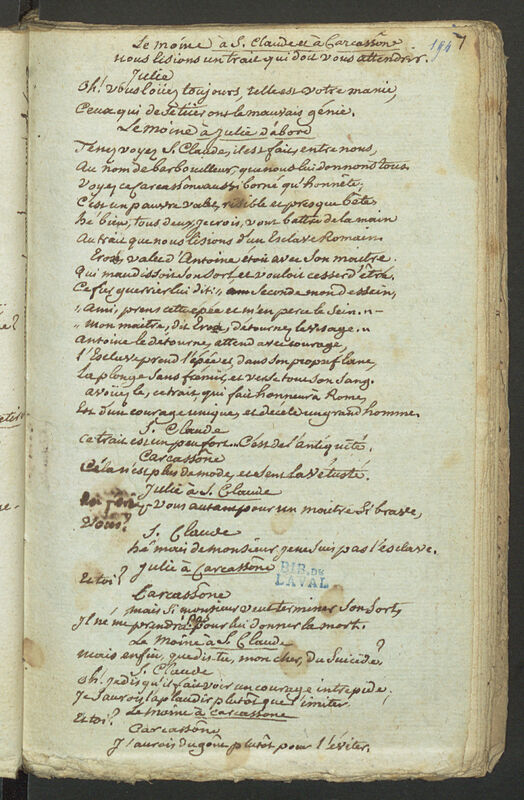 Le moine à S. Claude et à Carcassône
nous lisions un trait qui doit vous attendrir.
194 7
Julie
Oh! vous loüés toujours, telle est votre manie,
Ceux qui de Fetiieront le mauvais génie.
Le moine à Julie d'abord
Tenés, voyez S. Claude, il est fait, entre nous,
Au nom de barbouilleur, que nous lui donnons tous
Voyez ce Carcassône aussi borné qu'honnête:
C'est un pauvre valet, risible et presque bête
hé bien, tous deux, je crois, vont battre de la main
Au trait que nous lisions d'un Esclave Romain
Eros, valet d'Antoine étoit avec son maitre.
Qui maudissoit son sort et vouloit cesser d'être.
Ce fier guerrier lui dit: " seconde mon dessein,
" Ami, prens cette épée et m'en perce le sein. "
" mon maitre, dit Eros, détourne le visage. "
Antoine le detourne, attend avec courage,
l'Esclave prend l'épée et dans son propre flanc,
la plonge sans frémir, et verse tout son sang.
avoüés le, cet trait qui fait honneur à Rome,
Est d'un courage unique, et décele un grand homme.
S. Claude
ce trait est un peu fort... C'est de l'antiquité.
Carcassône
Cela n'est plus de mode, et sent la vétusté.
Julie à S. Claude
vous autant pour un maitre si brave,
Vous?
S. Claude
hé mais de monsieur je ne suis pas l'esclave.
Julie à Carcassône
Et toi?
BIB. DE
LAVAL
Carcassône
mais si monsieur veut terminer son sort,
Il ne me prendra pas pour lui donner la mort.
Le moine à S. Claude
mais enfin, que dis-tu, mon cher, du Suicide?
S. Claude
Oh! je dis qu'il fait voir un courage intrépide,
Je saurois l'aplaudir plutôt que l'imiter
Le moine à Carcassône
Et toi?
Carcassône
J'aurois du gôut plutôt pour l'éviter.